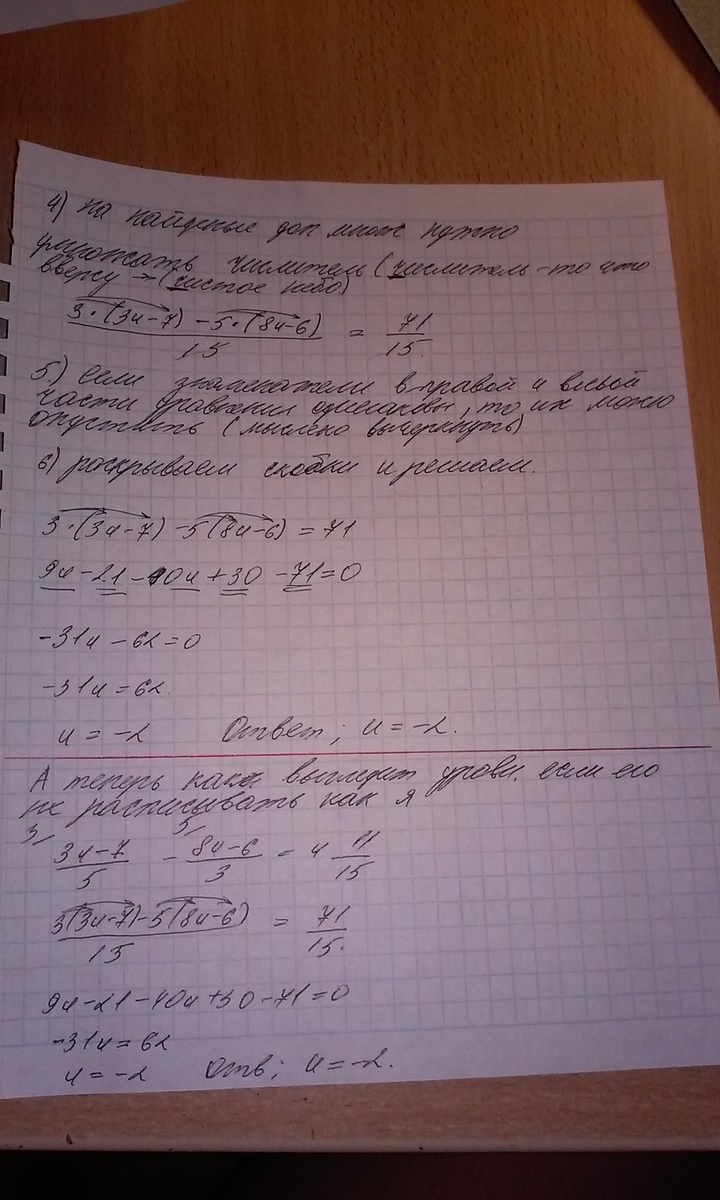 4) на найденые доп множ нужно
умножать числитель (числитель - то что
вверху → (чистое небо)
3·(3u-7) -5·(8u-6) / 15 = 71/15.
5) если знаменатели в правой и левой
части уравнения одинаковы, то их можно
опустить (мыслено вычеркнуть)
6) роскрываем скобки и решаем.
3·(3u-7) -5(8u-6) = 71
9u -21 -40u +30 -71=0
-31u -62=0
-31u = 62.
u = -2 Ответ; u = -2.
А теперь как выглядит уравн. если его
не расписывать как я
3/ 3u-7/5 - 5/ 8u-6/3 = 4 11/15
3(3u-7)-5(8u-6) / 15 = 71/15.
9u-21-40u+30-71=0
-31u = 62
u = -2 Отв; u = -2.